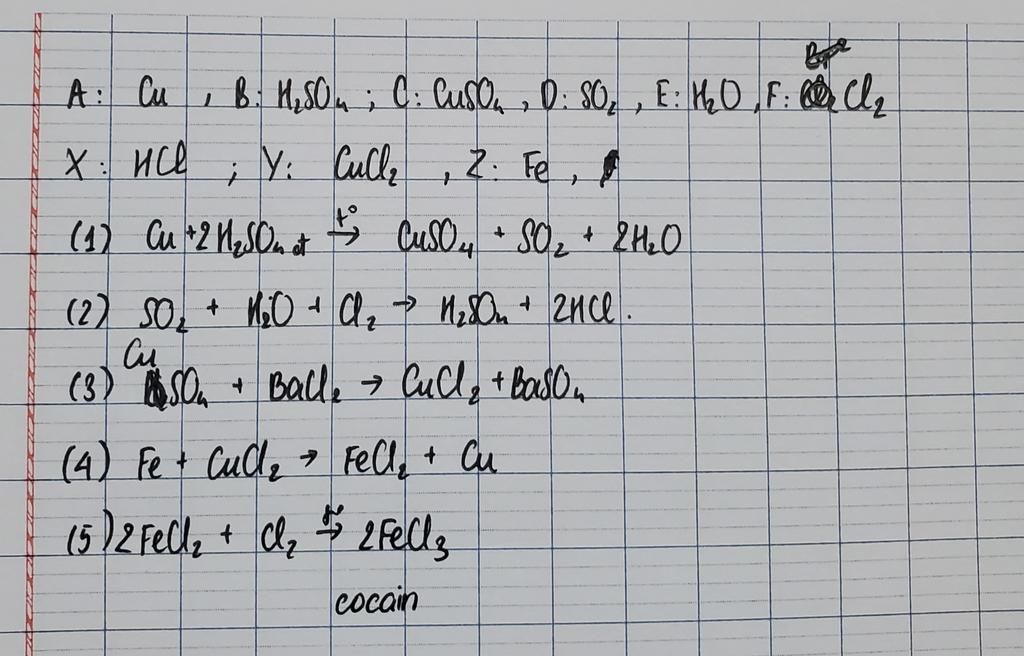 A: Cu , B: H₂SO₄ ; C: CuSO₄ , D: SO₂ , E: H₂O , F: Cl₂
X: HCl ; Y: CuCl₂ , Z: Fe ,
(1) Cu + 2H₂SO₄ đ t°→ CuSO₄ + SO₂ + 2H₂O
(2) SO₂ + H₂O + Cl₂ → H₂SO₄ + 2HCl.
(3) CuSO₄ + BaCl₂ → CuCl₂ + BaSO₄
(4) Fe + CuCl₂ → FeCl₂ + Cu
(5) 2FeCl₂ + Cl₂ t°→ 2FeCl₃
cocain